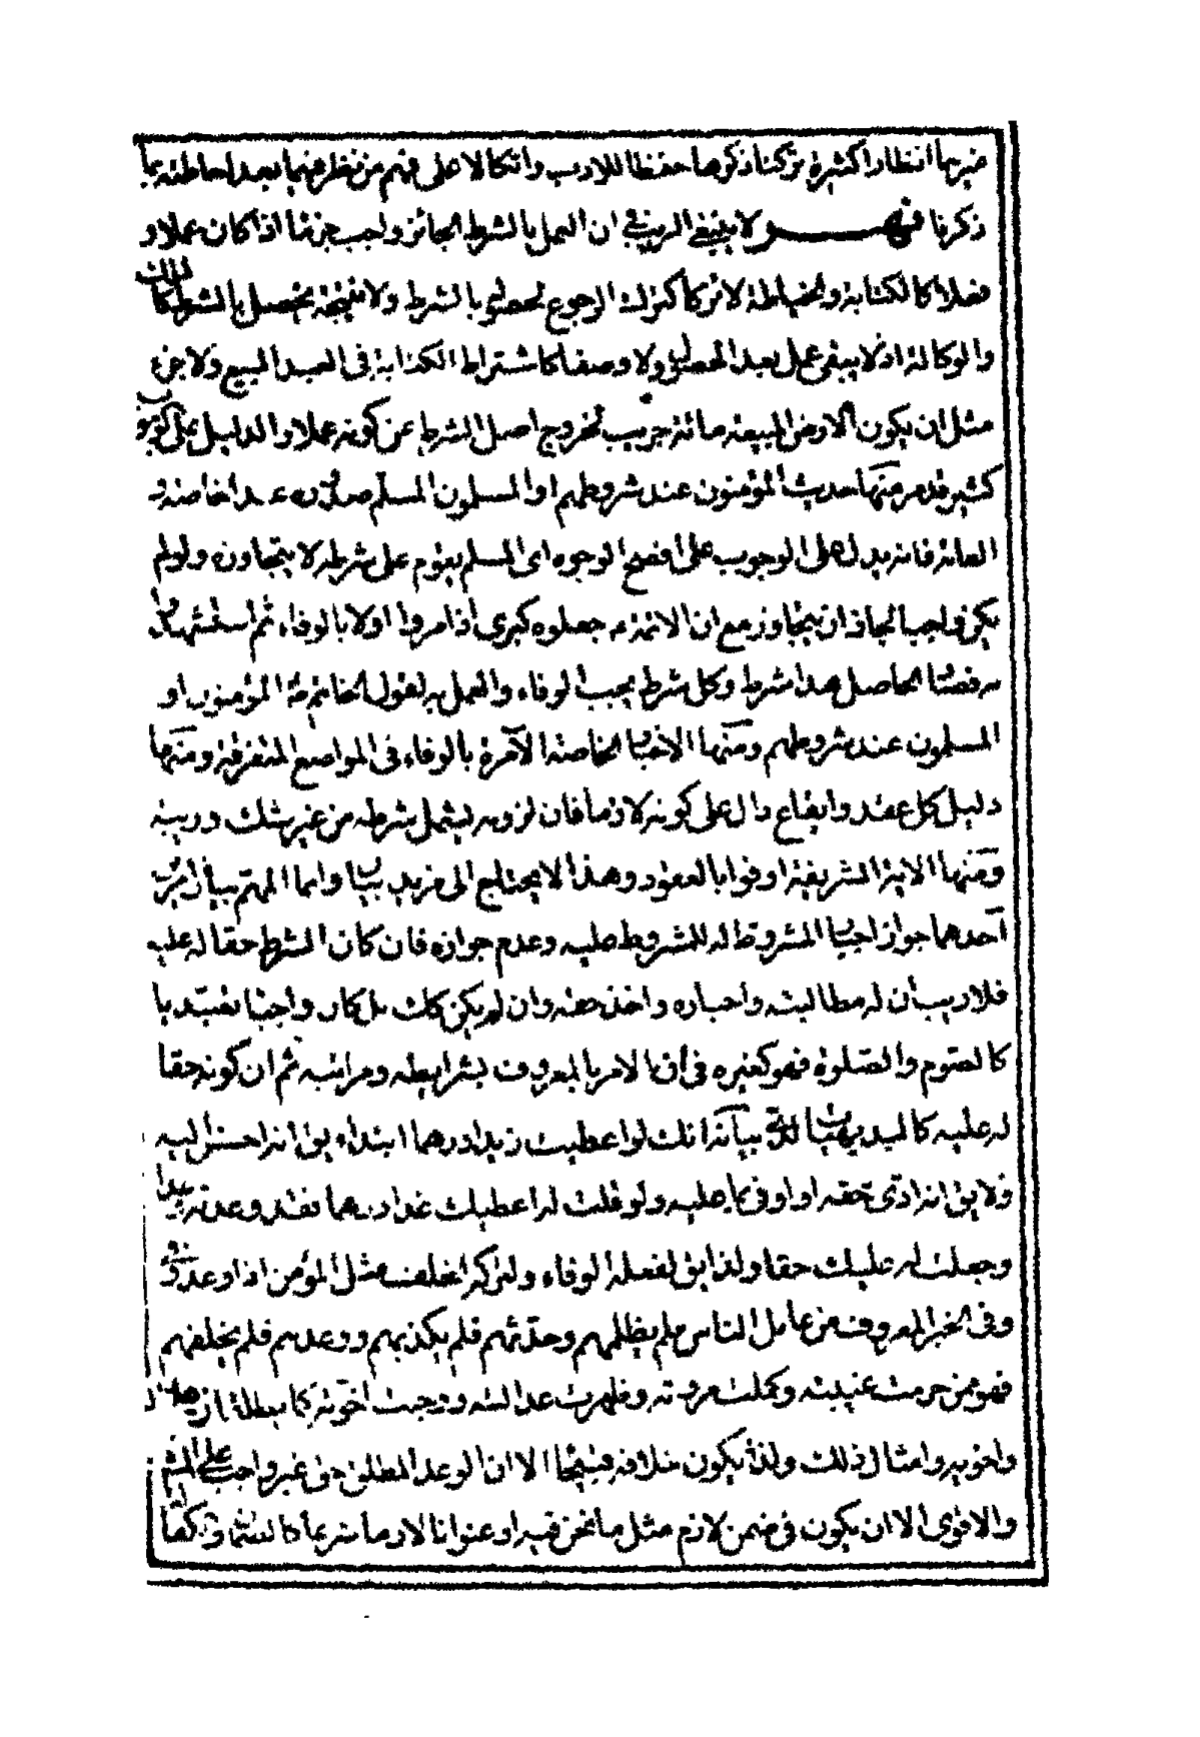 ضربها انظارا كثيرة تركنا ذكرها حفظا للادب واتكالا على فهم من نظر فيها بعد احاطته بما
ذكرنا فهــــر لا ينبغي الريب في ان العمل بالشرط الجائز واجب جزما اذا كان عملا و
فعلا كالكتابة والخياطة لا تركا كترك الرجوع لحصوله بالشرط ولا نتيجة يحصل بالشرط كالملك
والوكالة اذ لا يبقى عمل بعد الحصول ولا وصفا كاشتراط الكتابة في العبد المبيع ولا جزء
مثل ان يكون الارض المبيعة مائة جريب لخروج اصل الشرط عن كونه عملا والدليل على الوجوب
كثير قد مر منها حديث المؤمنون عند شروطهم او المسلمون المسلم صدره عند الخاصة و
العامة فانه يدل على الوجوب على افصح الوجوه اى المسلم يقوم على شرطه لا يتجاوزه ولو لم
يكن واجبا لجاز ان يتجاوز مع ان الائمة ع جعلوه كبرى اذ امروا اولا بالوفاء ثم استشهدوا
به فصار الحاصل هذا شرط وكل شرط يجب الوفاء والعمل به لقول الخاتم ص المؤمنون او
المسلمون عند شروطهم ومنها الاخبار الخاصة الآمرة بالوفاء في المواضع المتفرقة ومنها
دليل كل عقد وايقاع دال على كونه لازما فان لزومه يشمل شرطه من غير شك وريبة
ومنها الاية الشريفة اوفوا بالعقود وهذا لا يحتاج الى مزيد بيان وانما المهم بيان امرين
آحدهما جواز اجبار المشروط له للمشروط عليه وعدم جوازه فان كان الشرط حقا له عليه
فلا ريب ان له مطالبته واجباره واخذ حقه وان لم يكن كك بل كان واجبا تعبديا
كالصوم والصلوة فهو كغيره في ان الامر بالمعروف بشرايطه ومراتبه ثم ان كونه حقا
له عليه كالبديهيات لدى بيانه انك لو اعطيت زيدا درهما ابتداء يق انه احسن اليه
ولا يق انه ادى حقه او اوفى بما عليه ولو قلت له اعطيك غدا درهما فقد وعدته بهذا
وجعلت له عليك حقا ولذا يق لفعله الوفاء ولتركه الخلف مثل المؤمن اذا وعد وفى
وفى الخبر المعروف من عامل الناس فلم يظلمهم وحدثهم فلم يكذبهم ووعدهم فلم يخلفهم
فهو ممن حرمت غيبته وكملت مروته وظهرت عدالته ووجبت اخوته كما
وامثال ذلك ولذا يكون خلافه قبيحا الا ان الوعد المطلق حق غير واجب على المشهور
والاقوى الا ان يكون في ضمن لازم مثل ما نحن فيه او عنوانا لازما شرعا كالنذر